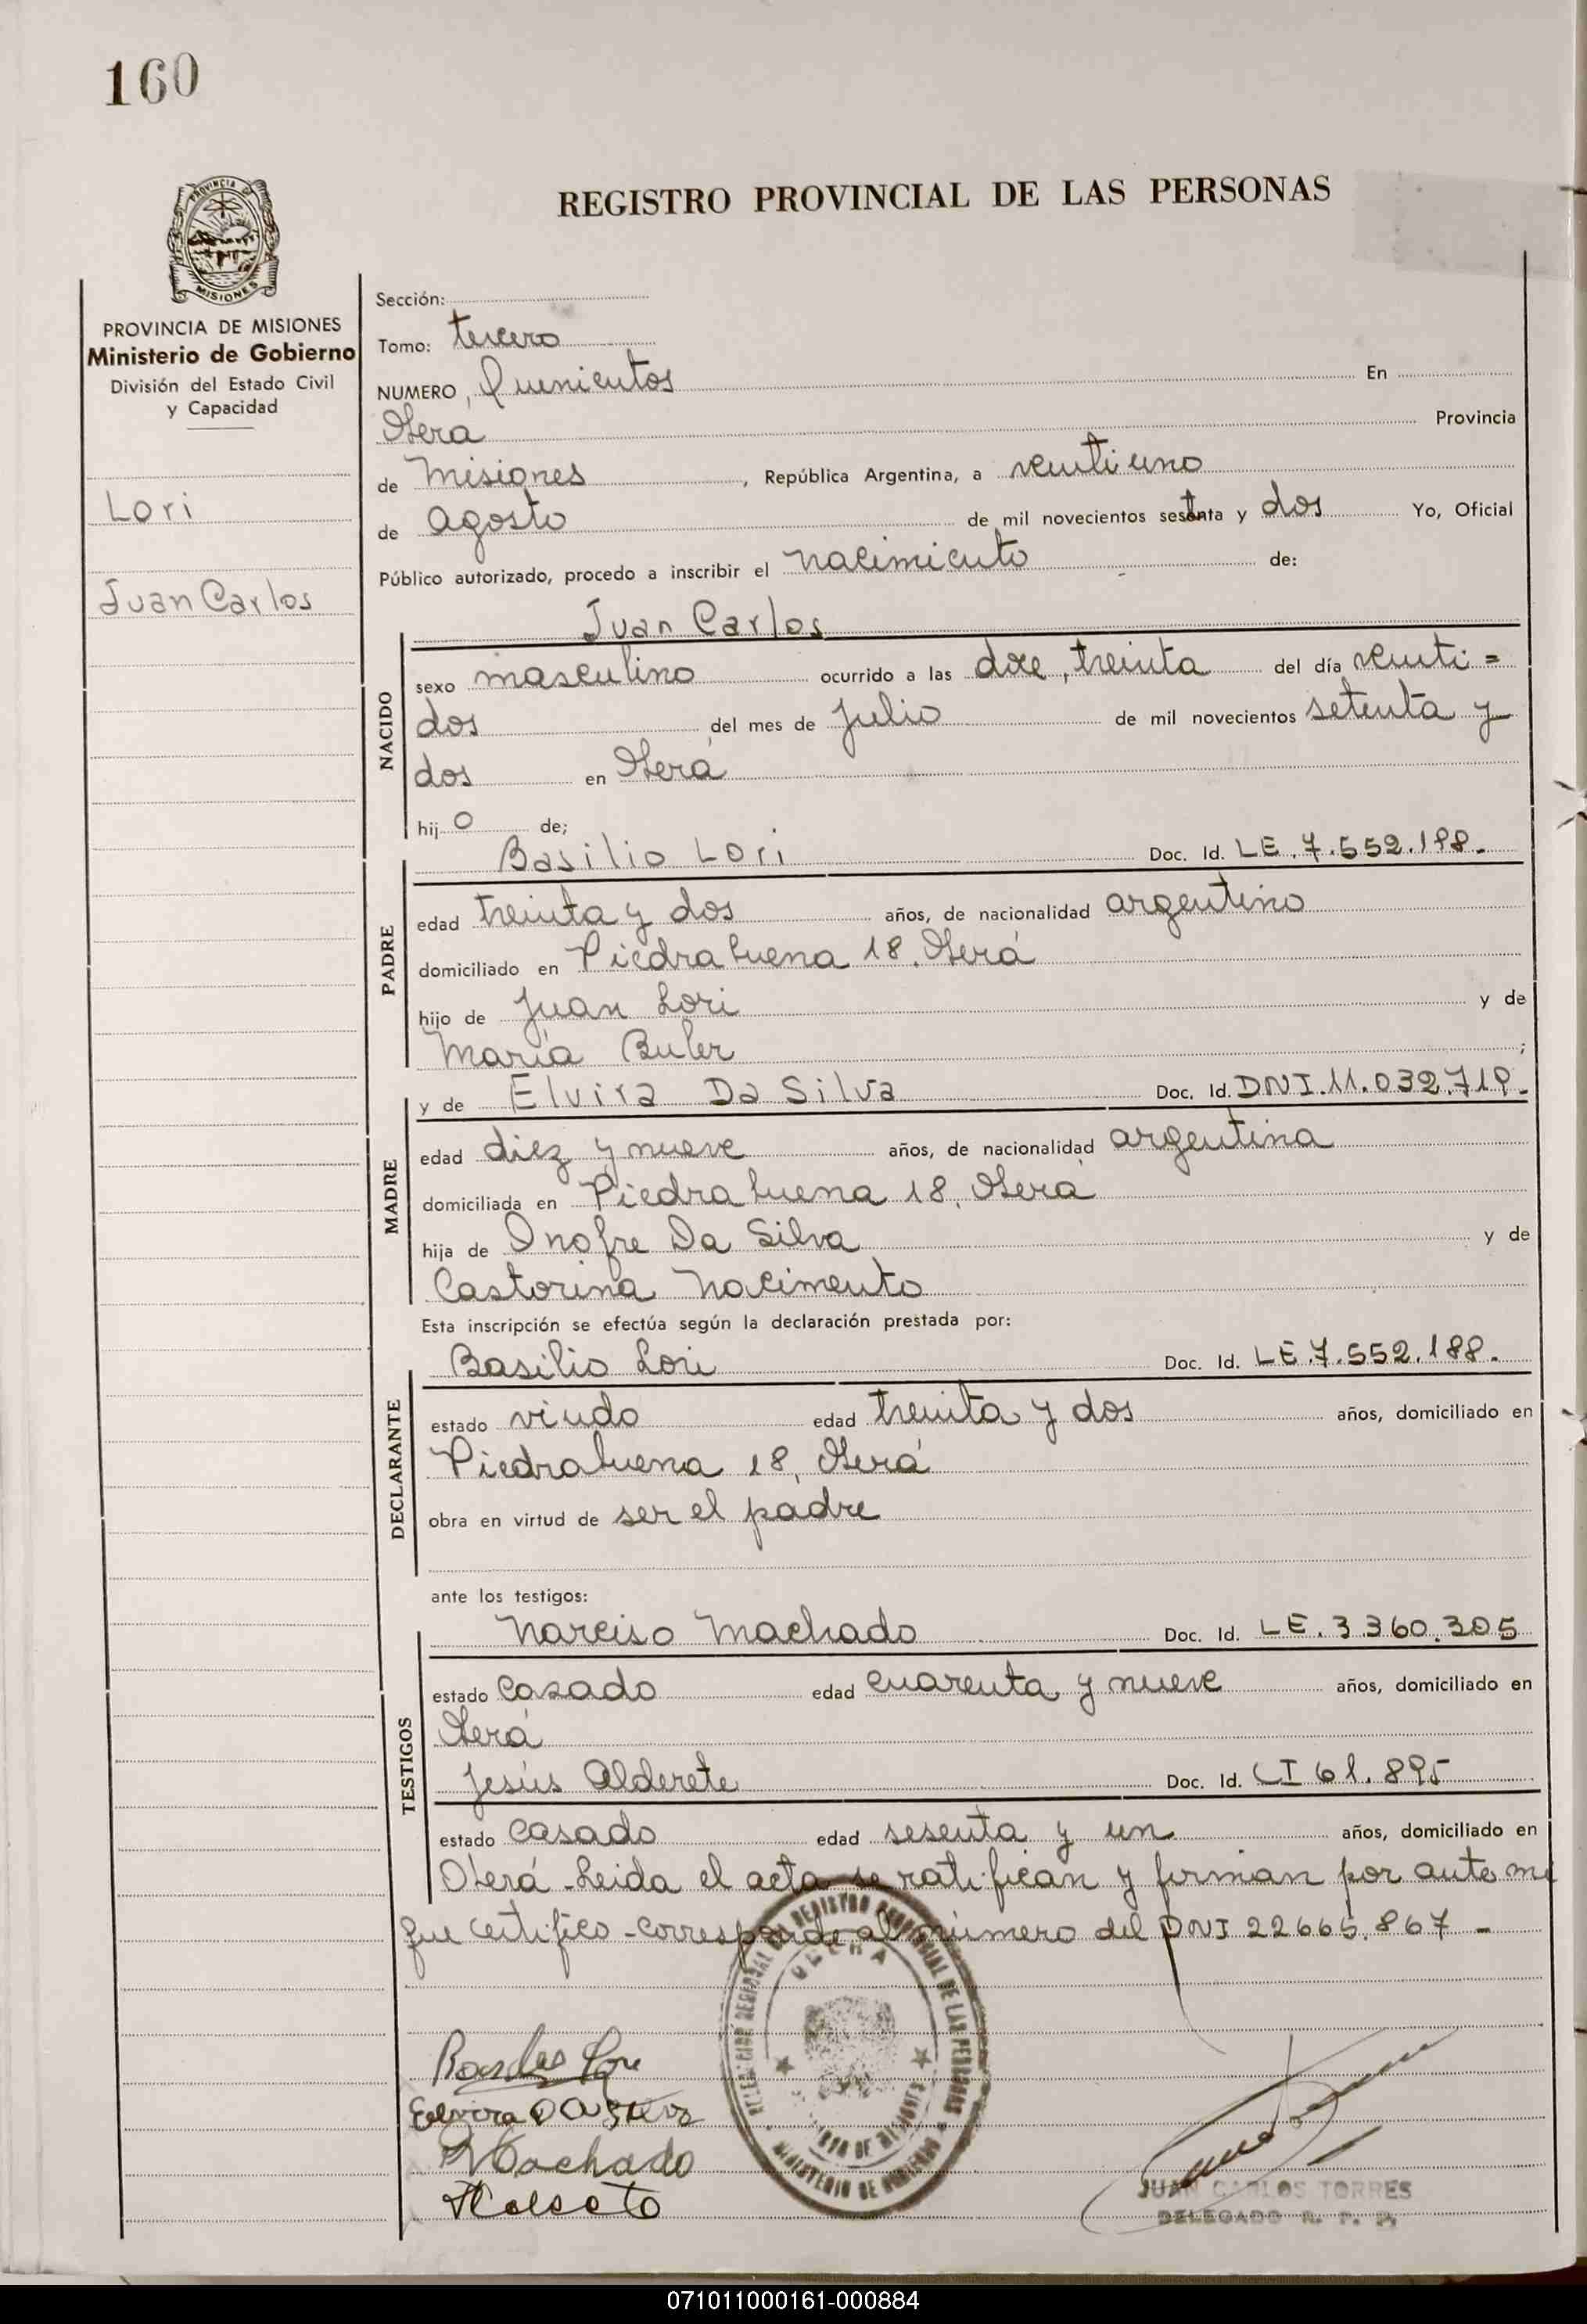 160
PROVINCIA DE
MISIONES
REGISTRO PROVINCIAL DE LAS PERSONAS
PROVINCIA DE MISIONES
Ministerio de Gobierno
División del Estado Civil
y Capacidad
Lori
Juan Carlos
Sección:
Tomo: tercero
NUMERO, Quinientos En
Oberá Provincia
de Misiones, República Argentina, a veintiuno
de agosto de mil novecientos setenta y dos Yo, Oficial
Público autorizado, procedo a inscribir el nacimiento de:
Juan Carlos
NACIDO
sexo masculino ocurrido a las doce, treinta del día veinti=
dos del mes de julio de mil novecientos setenta y
dos en Oberá
hijo de;
Basilio Lori Doc. Id. LE.7.552.188.
PADRE
edad treinta y dos años, de nacionalidad argentino
domiciliado en Piedrabuena 18. Oberá
hijo de Juan Lori y de
María Buler;
y de Elvira Da Silva Doc. Id. DNI.11.032.719.
MADRE
edad diez y nueve años, de nacionalidad argentina
domiciliada en Piedrabuena 18, Oberá
hija de Onofre Da Silva y de
Castorina Nacimento
Esta inscripción se efectúa según la declaración prestada por:
Basilio Lori Doc. Id. LE.7.552.188.
DECLARANTE
estado viudo edad treinta y dos años, domiciliado en
Piedrabuena 18, Oberá
obra en virtud de ser el padre
ante los testigos:
Narciso Machado Doc. Id. LE.3.360.305
TESTIGOS
estado casado edad cuarenta y nueve años, domiciliado en
Oberá
Jesús Alderete Doc. Id. CI 61.895
estado casado edad sesenta y un años, domiciliado en
Oberá - Leida el acta se ratifican y firman por ante mi
que certifico - corresponde al número del DNI 22665.867 -
OBERA
MINISTERIO DE GOBIERNO
Elvira DA Silva
Machado
JUAN CARLOS TORRES
DELEGADO R. P. P.
071011000161-000884